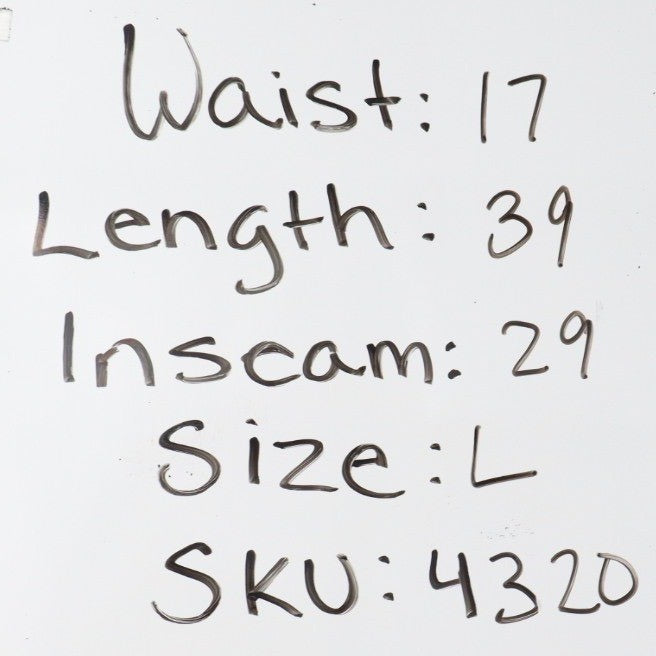 Waist: 17
Length: 39
Inseam: 29
Size: L
SKU: 4320